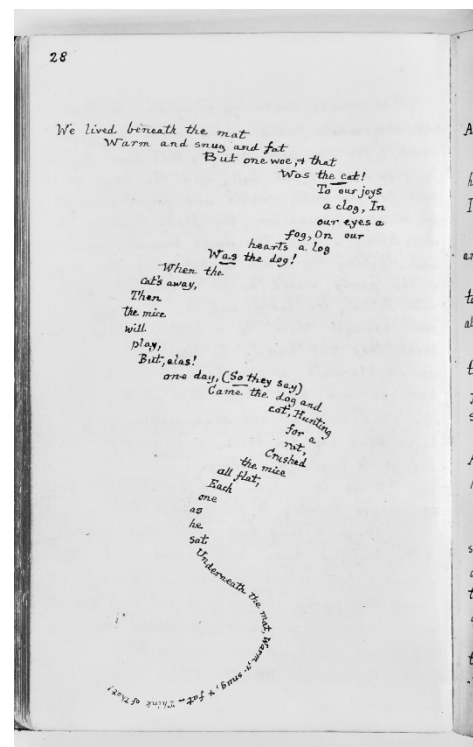 28
We lived beneath the mat
Warm and snug and fat
But one woe, & that
Was the cat!
To our joys
a clog, In
our eyes a
fog, On our
hearts a log
Was the dog!
When the
Cat's away,
Then
the mice
will
play,
But, alas!
one day, (So they say)
Came the dog and
cat, Hunting
for a
rat,
Crushed
the mice
all flat,
Each
one
as
he
sat
Underneath the mat, Warm, & snug, & fat — Think of that!